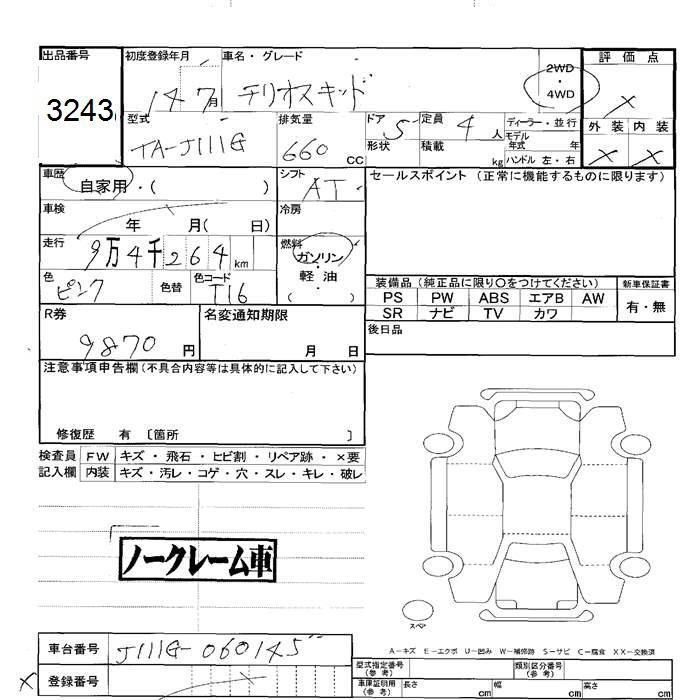 出品番号 初度登録年月 車名・グレード 2WD・4WD 評価点
3243 14 7月 テリオスキッド ×
型式 TA-J111G 排気量 660cc ドア 5 定員 4人 ディーラー・並行 外装 内装
形状 積載 kg モデル年式 年 ハンドル 左・右 × ×
車歴 自家用・( ) シフト AT セールスポイント (正常に機能するものに限ります)
車検 年 月( 日) 冷房
走行 9万4千264km 燃料 ガソリン・軽油 ( )
色 ピンク 色替 色コード T16
装備品 (純正品に限り〇をつけてください) 新車保証書
PS PW ABS エアB AW 有・無
SR ナビ TV カワ
R券 9870円 名変通知期限 月 日 後日品
注意事項申告欄 (不具合内容等は具体的に記入して下さい)
修復歴 有 〔箇所 〕
検査員 FW キズ・飛石・ヒビ割・リペア跡・×要
記入欄 内装 キズ・汚レ・コゲ・穴・スレ・キレ・破レ
ノークレーム車
スペア
A-キズ E-エクボ U-凹み W-補修跡 S-サビ C-腐食 XX-交換済
車台番号 J111G-060145
登録番号
×
型式指定番号 (参考) 類別区分番号 (参考)
車庫証明用 (参考) 長さ cm 幅 cm 高さ cm